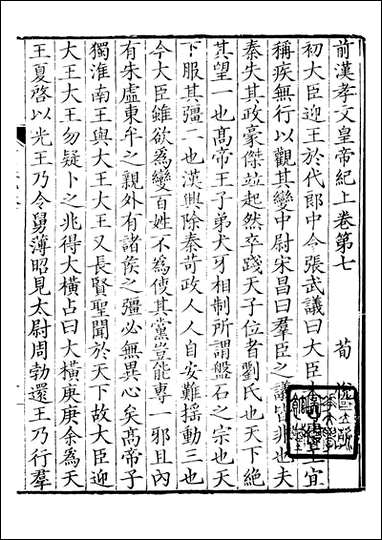 前漢孝文皇帝紀上卷第七 荀
初大臣迎王於代郎中令張武議曰大臣 王宜
稱疾無行以觀其變中尉宋昌曰羣臣之議皆非也夫
秦失其政豪傑竝起然卒踐天子位者劉氏也天下絕
其望一也髙帝王子弟犬牙相制所謂盤石之宗也天
下服其彊二也漢興除秦苛政人人自安難揺動三也
今大臣雖欲為變百姓不為使其黨豈能專一邪且內
有朱虛東牟之親外有諸矦之彊必無異心矣髙帝子
獨淮南王與大王大王又長賢聖聞於天下故大臣迎
大王大王勿疑卜之兆得大橫占曰大橫庚庚余為天
王夏啓以光王乃令舅薄昭見太尉周勃還王乃行羣